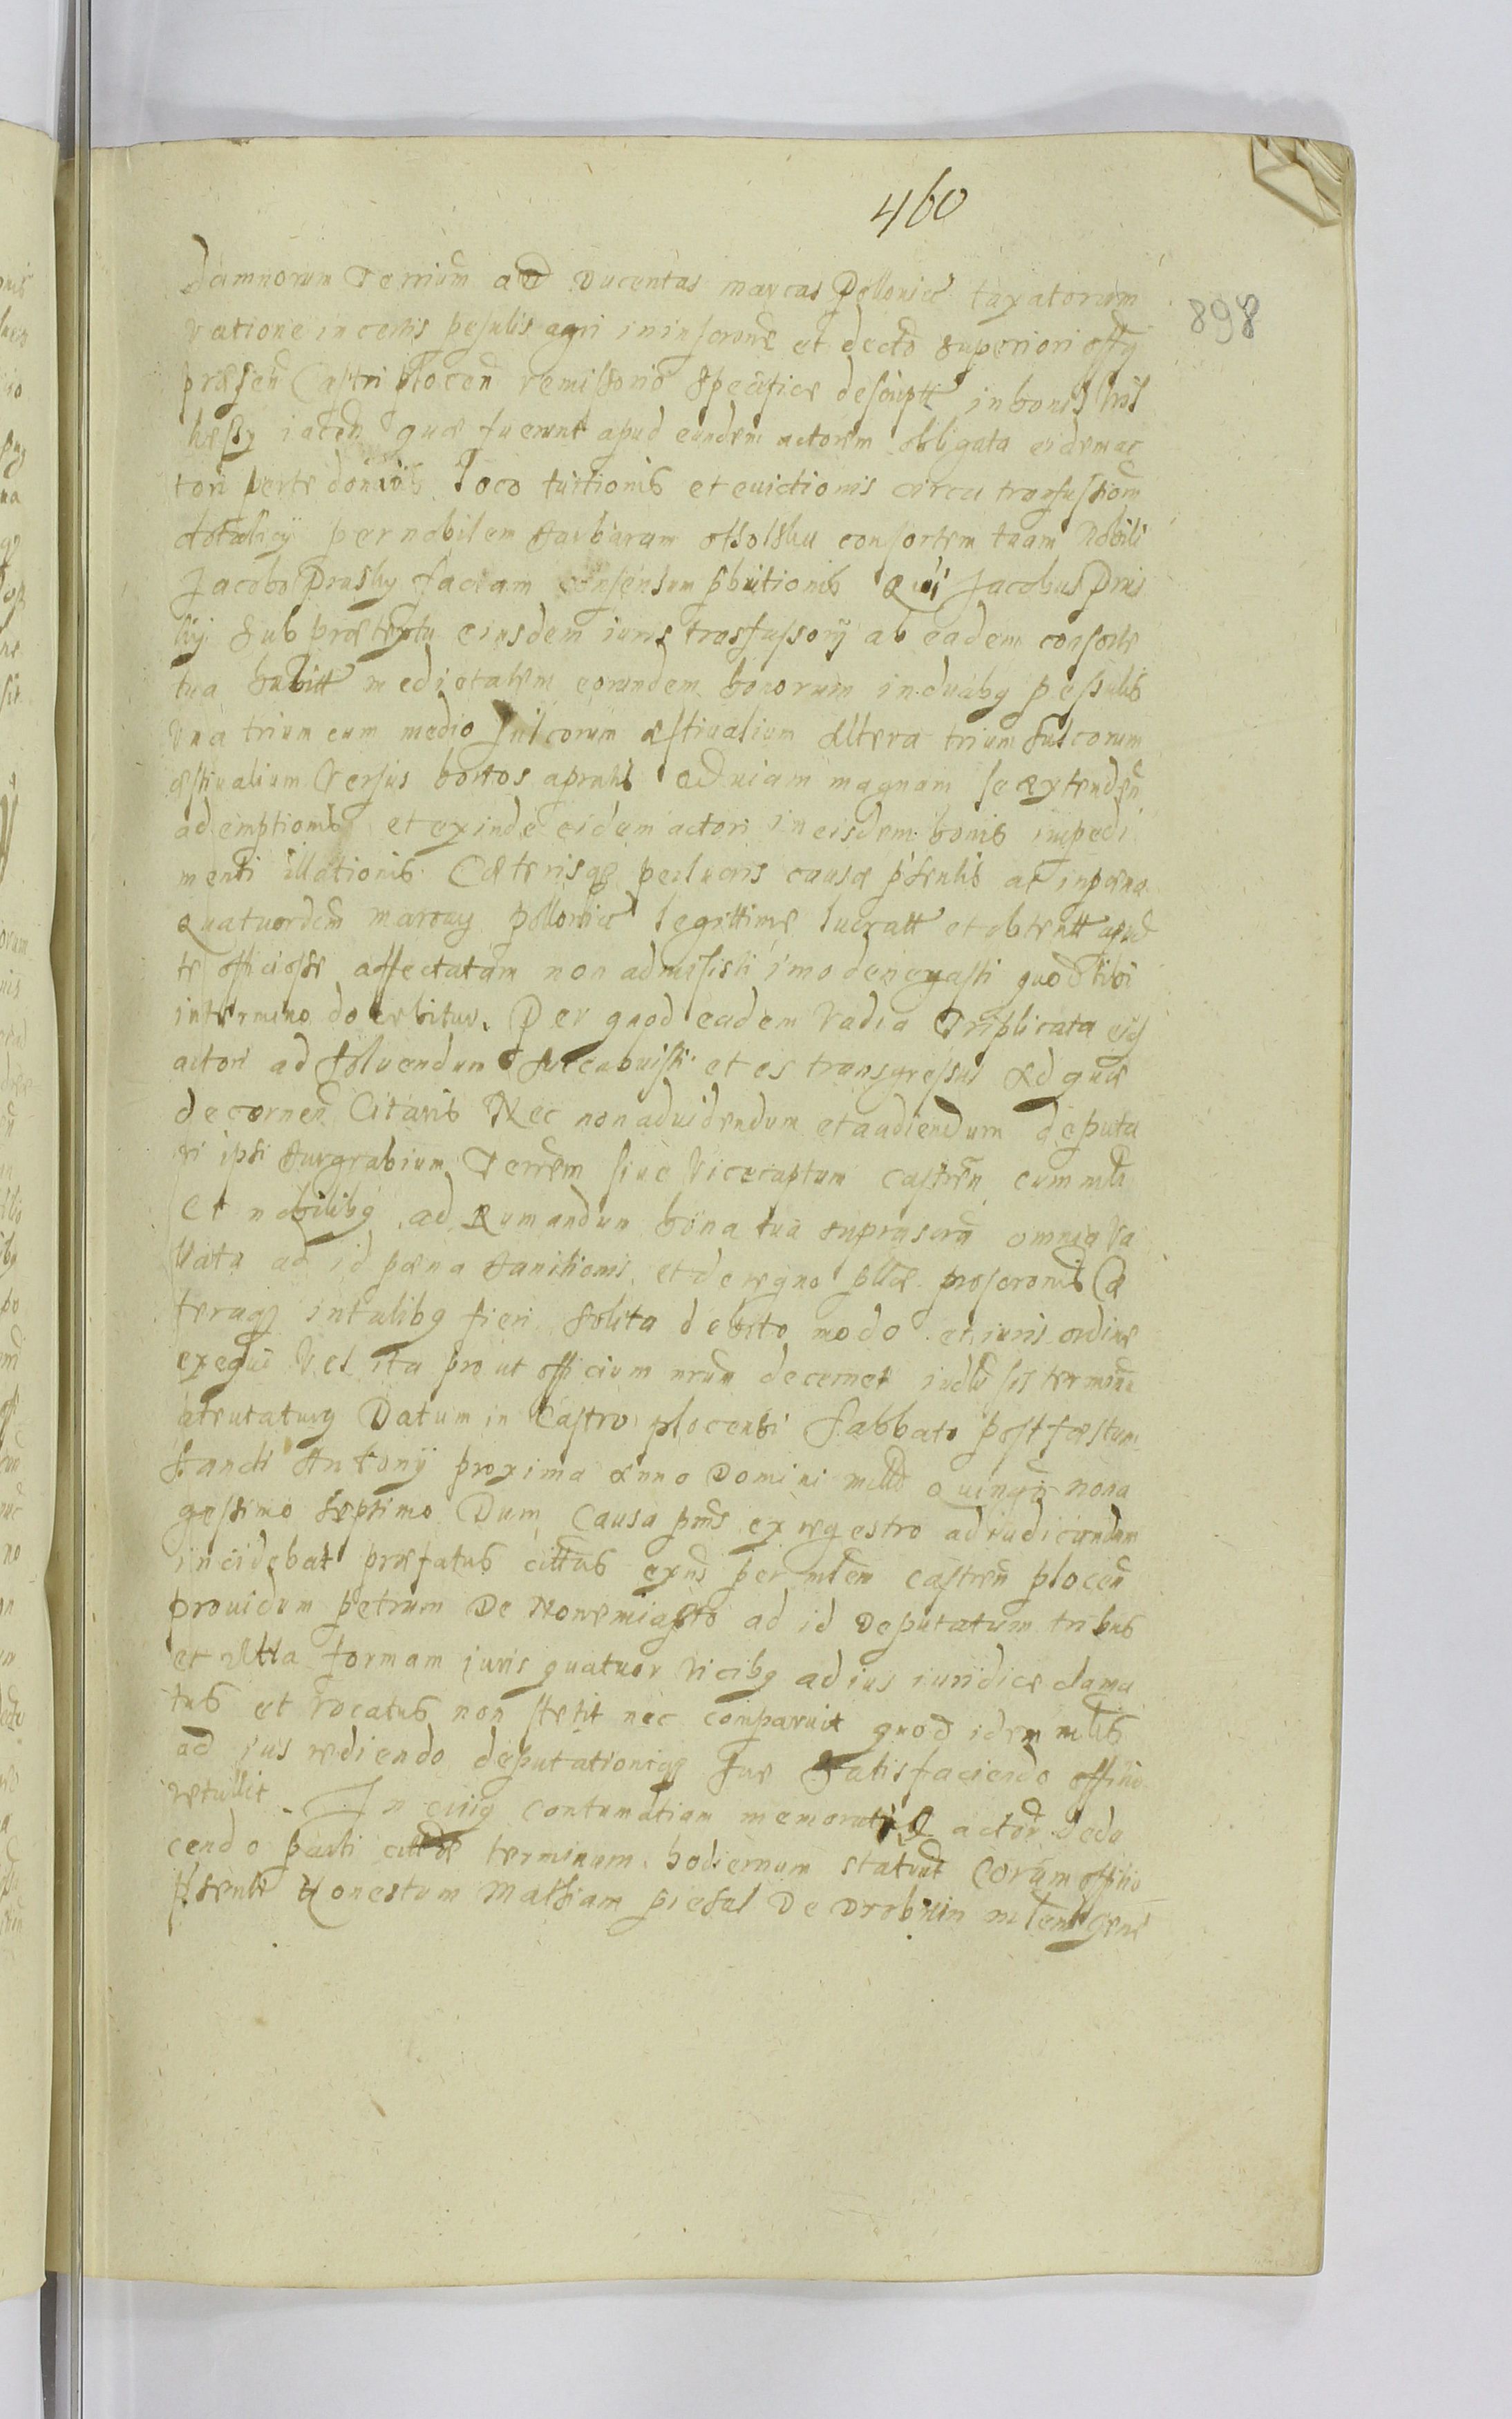 460
898
damnorum Terrium ad Ducentas marcas Pollonice taxatorum
ratione in certis pesulis agri in inscrone et decto superiori offy
præsen Castri plocen remissorio specifice descriptt in bonis
iacen quæ fuerunt apud eundem actorem obligata eidem ac
tori per te loco tuitionis et euictionis circa transfusiom
dotalicÿ per nobilem Barbaram consortem tuam Nobili
Jacobo Prusky factam consensum Qui Jacobus Prus
kÿ sub prætextu eiusdem iuris trasfussorÿ ab eadem consorte
tua habitt medietatem eorundem bonorum in duabq pessulis
Vna trium cum medio sulcorum æstiualium Altera trium sulcorum
æstiualium Versus hortos apratis ad uiam magnam se extenden
ademptionis et exinde eidem actori in eisdem bonis impedi
menti illationis Cæterisqe perlucris causæ pñtentis at in pæna
quatuordem marcarq pollonice legittime lucratt et obtentt apud
te officiose affectatam non admisisti imo denegasti quod tibi
in termino docebitur. Per quod eadem Vadia Triplicata eid
actori ad soluendum succubuisti et es transgressus Ad quæ
decernen Citaris Nec non aduidendum et audiendum deputa
ri ipsi Burgrabium Terrem siue Vicecaptum castren cum mlti
et nobilibq ad Rumandum bona tua suprascra omnia Va
llata ad id pæna Banitionis et de regno pllæ proscronis Cæ
teraqe in talibq fieri solita debito modo et iuris ordine
exequi Vel ita prout officium nrum decernet iudlr sis terminu
attentaturq Datum in Castro plocensi Sabbato post fæstum
Sancti Antonÿ proxima Anno Domini millo quingo nona
gessimo septimo Dum Causa pns ex regestro adiudicandum
incidebat præfatus cittus expns per mlem castren plocen
prouidum petrum De Nowemiasto ad id Deputatum tribus
et Vltra formam iuris quatuor Vicibq ad ius iuridice clama
tus et Vocatus non stetit nec comparuit quod idem mlis
ad ius rediendo deputationiqe sue satisfaciendo officio
retullit. In cuiq contumatiam memoratus actor dedu
cendo parti cittatæ terminum hodiernum statuit Coram officio
pñsente Honestum Mathiam De Drobnin mlem gene